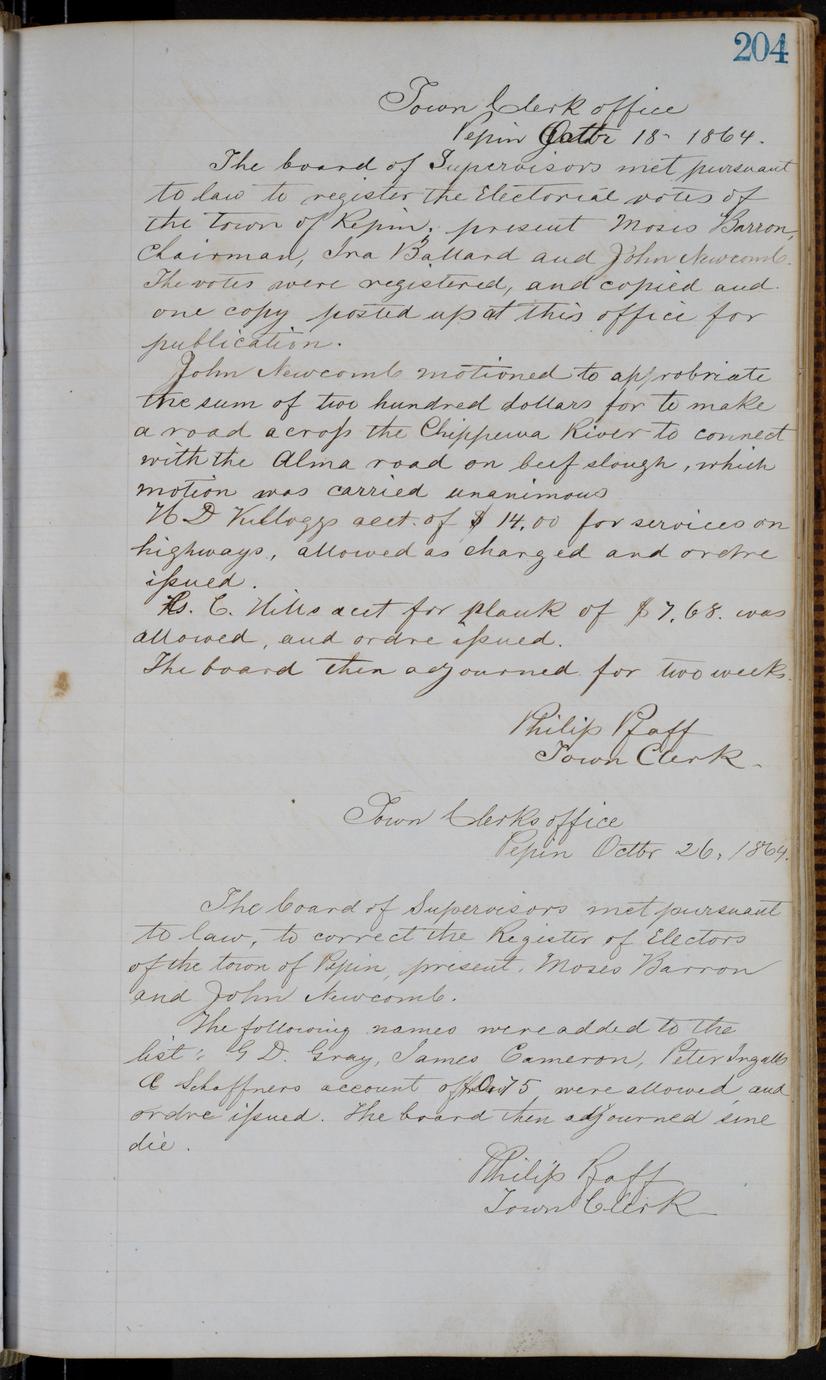 204
Town Clerk office
Pepin Octbr 18- 1864.
The board of Supervisors met pursuant
to law to register the Electorial votes of
the town of Pepin; present Moses Barron,
Chairman, Ira Ballard and John Newcomb.
The votes were registered, and copied and
one copy posted up at this office for
publication.
John Newcomb motioned to approbriate
the sum of two hundred dollars for to make
a road across the Chippewa River to connect
with the Alma road on beef slough, which
motion was carried unanimous
H D Kelloggs acct. of $14.00 for services on
highways, allowed as charged and ordre
issued.
C. Hills acct for plank of $7,68. was
allowed, and ordre issued.
The board then adjourned for two weeks.
Philip Pfaff
Town Clerk.
Town Clerks office
Pepin Octbr 26, 1864.
The board of Supervisors met pursuant
to law, to correct the Register of Electors
of the town of Pepin, present. Moses Barron
and John Newcomb.
The following names were added to the
list: G D. Gray, James Cameron, Peter Ingalls
C Schaffners account of 75 were allowed, and
ordre issued. The board then adjourned sine
die.
Philip Pfaff
Town Clerk